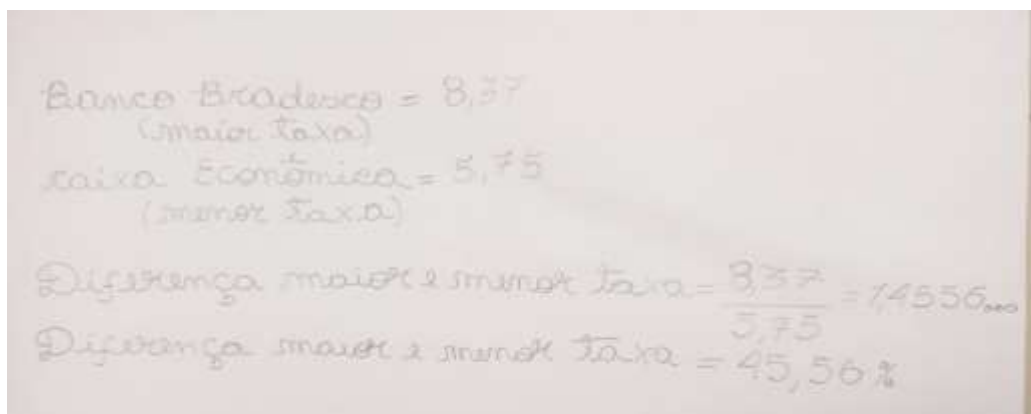 Banco Bradesco = 8,37
(maior taxa)
caixa Econômica = 5,75
(menor taxa)
Diferença maior e menor taxa = 8,37 / 5,75 = 1,4556...
Diferença maior e menor taxa = 45,56 %